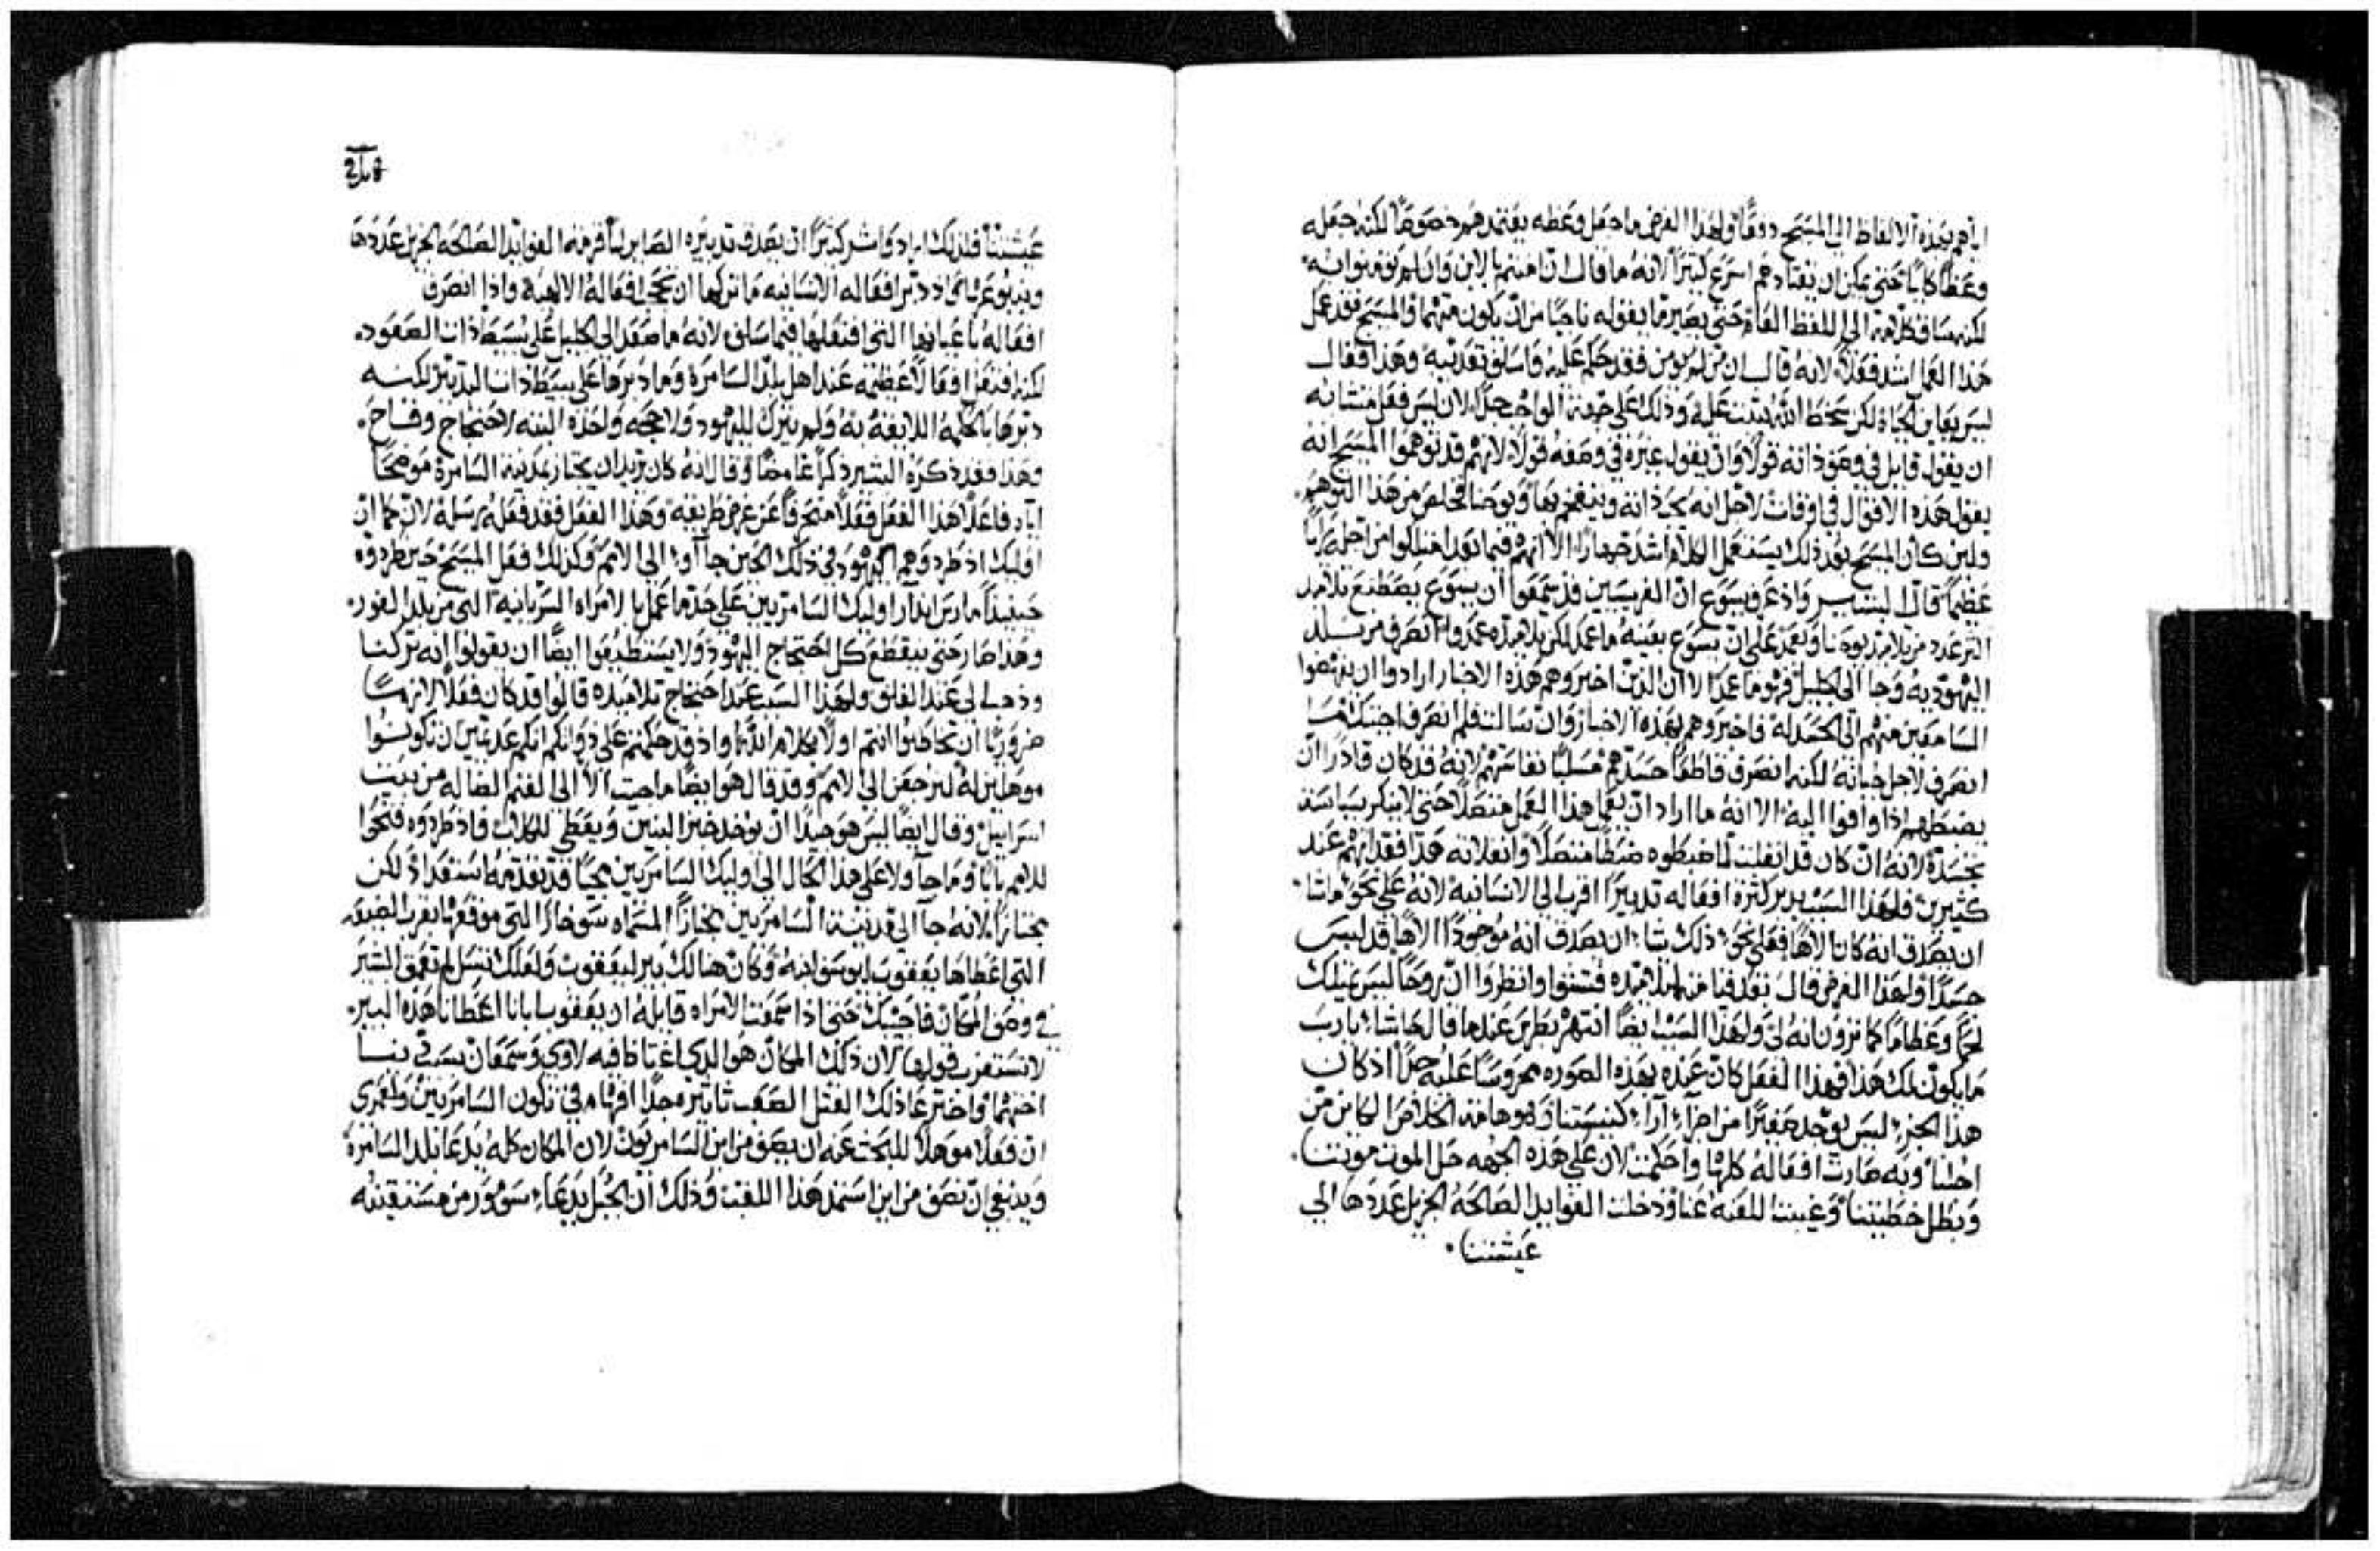 اياهم بهذه الالفاظ الي المسيح دوقا ولهذا الغرض ما جعل وعظه يعتمدهم خصوصا لكنه جعله
وعظا كايا حتي يمكن ان يقتادهم اسرع كثيرا لانه ما قال ان امنتم بالابن وان لم تومنوا به
لكنه ساق كلامه الي اللفظ العام حتي يصير ما يقوله ناجيا من ان يكون متهما والمسيح فقد عمل
هذا العمل اشد فعلا لانه قال ان من لم يومن فقد حكم عليه واسلف تعذيبه وهذا فقال
ليس يعاين الحياة لكن سخط الله يثبت عليه وذلك علي جهة الواجب جدا لان ليس فعل متشابه
ان يقول قايل في وصف ذاته قولا وان يقول غيره في وصفه قولا لانهم قد توهموا المسيح انه
يقول هذه الاقوال في اوقات لاجل انه يحب ذاته ويتفخم بها ويوحنا فخلص من هذا التوهم
ولين كان المسيح بعد ذلك يستعمل الكلام اشد جهارا الا انهم فيما بعد امتلكوا من اجله رايا
عظيما قال البشير واذ عرف يسوع ان الفريسيين قد سمعوا ان يسوع يصطنع تلاميذ
اكثر عدد من تلاميذ يوحنا ويعمد علي ان يسوع بعينه ما عمد لكن تلاميذه عمدوا انصرف من بلد
اليهوديه وجا الي الجليل فهو ما عمد الا ان الذين اخبروهم هذه الاخبار ارادوا ان ينهضوا
السامعين منهم الي الحسد له فاخبروهم بهذه الاخبار وان سالت فلم انصرف اجبتك ما
انصرف لاجل جبانة لكنه انصرف قاطعا حسدهم مسليا نفاستهم لانه قد كان قادرا ان
يضبطهم اذا وافوا اليه الا انه ما اراد ان يعمل هذا العمل متصلا حتي لا ينكر سياسة
تجسده لانه ان كان قد انفلت لما ضبطوه ضبطا متصلا وانفلاته هذا فقد اتهم عند
كثيرين فلهذا السبب دبر كثرة افعاله تدبيرا اقرب الي الانسانيه لانه علي نحو ما شا
ان يصدق انه كان الاها فعلي نحو ذلك شا ان يصدق انه موجودا الاها قد لبس
جسدا ولهذا الغرض قال بعد قيامته لتلاميذه فتشوا وانظروا ان روحا ليس تملك
لحما وعظاما كما ترون انه لي ولهذا السبب ايضا انتهر بطرس عندما قال حاشا يا رب
ما يكون لك هذا فهذا الفعل كان عنده بهذه الصوره محروسا عليه جدا اذ كان
هذا الجز ليس يوجد صغيرا من اجزا ارا كنيستنا وهو هامة الخلاص الكاين من
اجلنا وبه صارت افعاله كلها واحكمت لان علي هذه الجهه حل الموت موتنا
وبطل خطيتنا وغيبت اللعنه عنا ودخلت الفوايد الصالحه الجزيل عددها الي
عيشتنا

عيشتنا فلذلك اراد واشر كثيرا ان يصدق تدبيره الصاير لنا فرمه الفوايد الصالحه الجزيل عددها
وينبوعها اذ دبر افعاله الانسانيه ما تركها ان تحجب افعاله الالهية واذا انصرف
افعاله باعيانها التي افتعلها فيما سلف لانه ما صعد الي الجليل علي بسيط ذات الصعود
لكنه افتعل افعالا عظيمه عند اهل بلد السامرة وما دبرها علي بسيط ذات التدبير لكنه
دبرها بالحكمه اللايقه به ولم يترك لليهود ولا حجه واحده البته لاحتجاج وقاح
وهذا فقد ذكره البشير ذكرا غامضا وقال انه كان يريد ان يجتاز بمدينة السامرة موضحا
اياه فاعلا هذا الفعل فعلا منحرفا عن غرض طريقه وهذا الفعل فقد فعله رسله لان كما ان
اوليك اذ طردوهم اليهود في ذلك الحين جااوا الي الامم وكذلك فعل المسيح حين طردوه
حينيذا مارس اذا اوليك السامريين علي حد ما عمل بالامراه السريانيه التي من بلد الغور
وهذا صار حتي ينقطع كل احتجاج اليهود ولا يستطيعوا ايضا ان يقولوا انه تركنا
وذهب الي عند الغلف ولهذا السبب عند احتجاج تلاميذه قالوا قد كان فعلا لازما
ضروريا ان تخاطبوا انتم اولا بكلام الله واذ قد حكمتم علي ذواتكم انكم عدمتم ان تكونوا
موهلين له لنرجعن الي الامم وقد قال هو ايضا ما جيت الا الي الغنم الضاله من بيت
اسراييل وقال ايضا ليس هو جيدا ان يوخذ خبز البنين ويعطي للكلاب فاذ طردوه فتحوا
للامم بابا وما جا ولا علي هذا الحال الي اوليك السامريين مجيا قد تقدمه استعداد لكن
مجتازا لانه جا الي مدينة السامريين مجتازا المسماه سوخار التي موقعها بقرب الضيعه
التي اعطاها يعقوب ليوسف ابنه وكان هنالك بير ليعقوب ولعلك تسل لم تعمق البشير
في وصف المكان فاجيبك حتي اذا سمعت الامراه قايله ان يعقوب ابانا اعطانا هذه البير
لا تستغرب قولها لان ذلك المكان هو الذي اغتاظا فيه لاوي وسمعان بسبب دينا
اختهما واجترعا ذلك القتل الصعب تاثيره جدا افهام في تكون السامريين ولعمري
ان فعلا موهلا للبحث عنه ان يصف من اين السامريون لان المكان كله يدعا بلد السامرة
وينبغي ان نصف من اين استمد هذا اللقب وذلك ان الجبل يدعا سومور من مستقينه